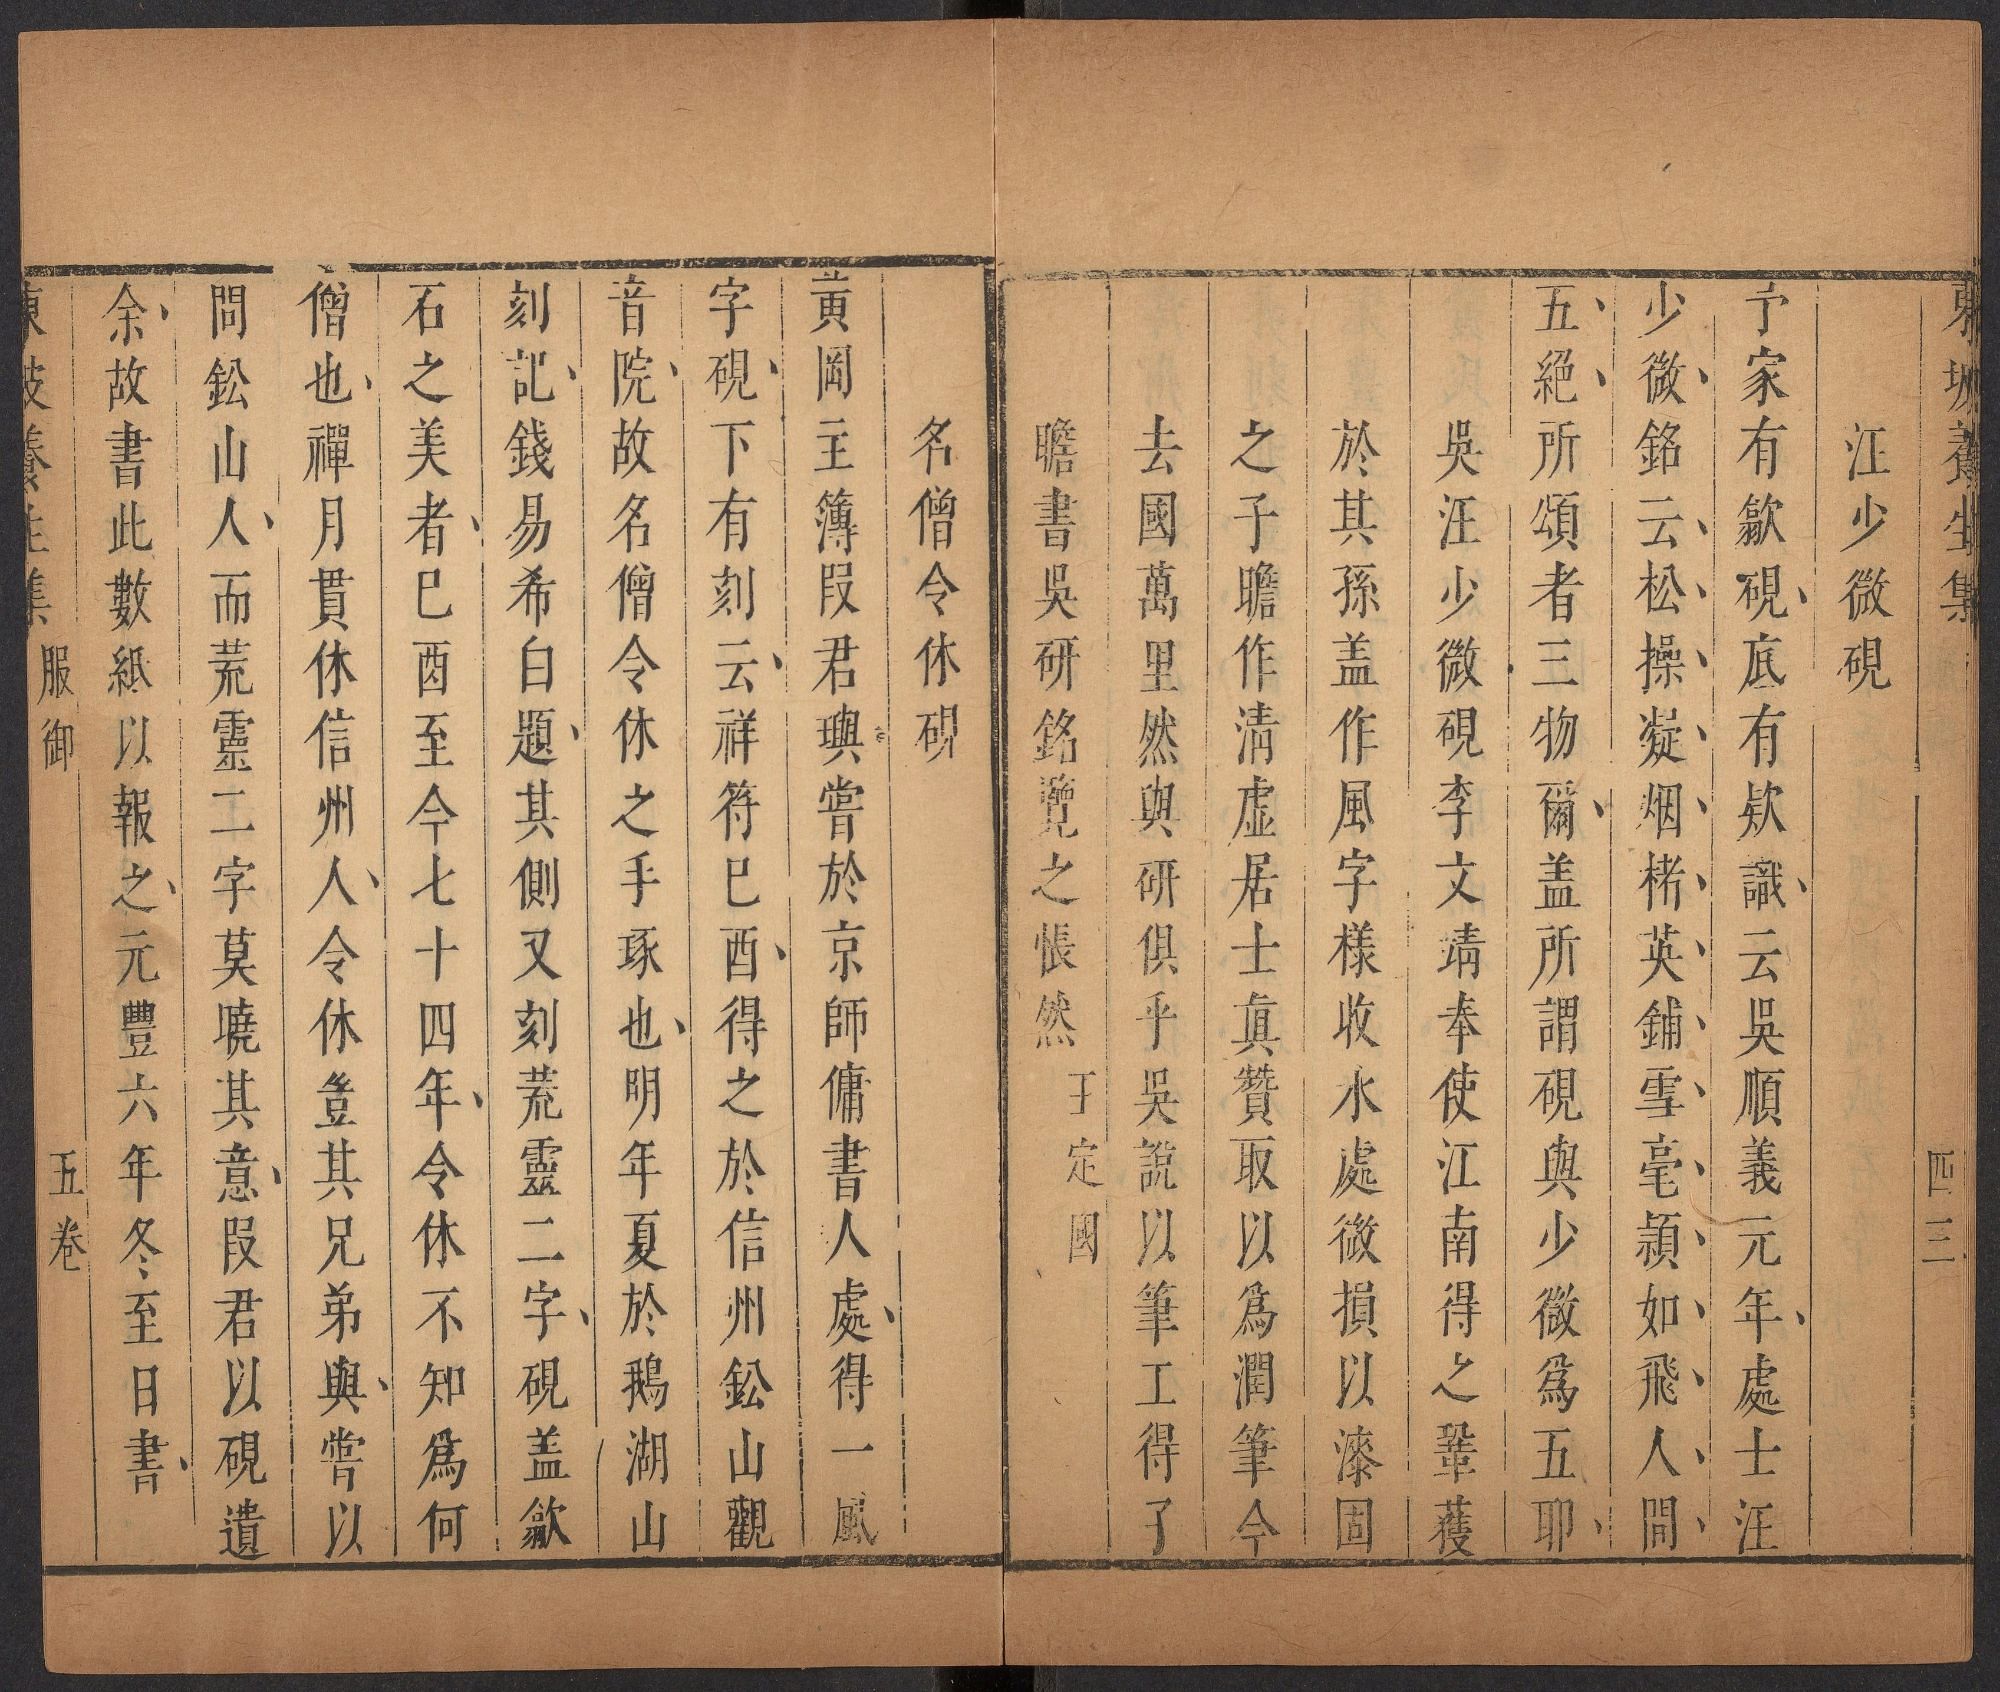 東坡養生集
四三
汪少微硯
予家有歙硯底有欵識云吳順義元年處士汪
少微銘云松操凝烟楮英鋪雪毫頴如飛人間
五絕所頌者三物爾盖所謂硯與少微爲五耶
吳汪少微硯李文靖奉使江南得之鞏蒦
於其孫盖作風字樣收水處微損以漆固
之子瞻作淸虛居士眞贊取以爲潤筆今
去國萬里然與研俱乎吳說以筆工得了
瞻書吳研銘覽之悵然 王定國
名僧令休硯
黃岡主簿叚君璵嘗於京師傭書人處得一風
字硯下有刻云祥符巳酉得之於信州鈆山觀
音院故名僧令休之手琢也明年夏於鵝湖山
刻記錢易希白題其側又刻荒靈二字硯盖歙
石之美者巳酉至今七十四年令休不知爲何
僧也禪月貫休信州人令休豈其兄弟與嘗以
問鈆山人而荒靈二字莫曉其意叚君以硯遺
余故書此數紙以報之元豐六年冬至日書
東坡養生集 服御 五卷